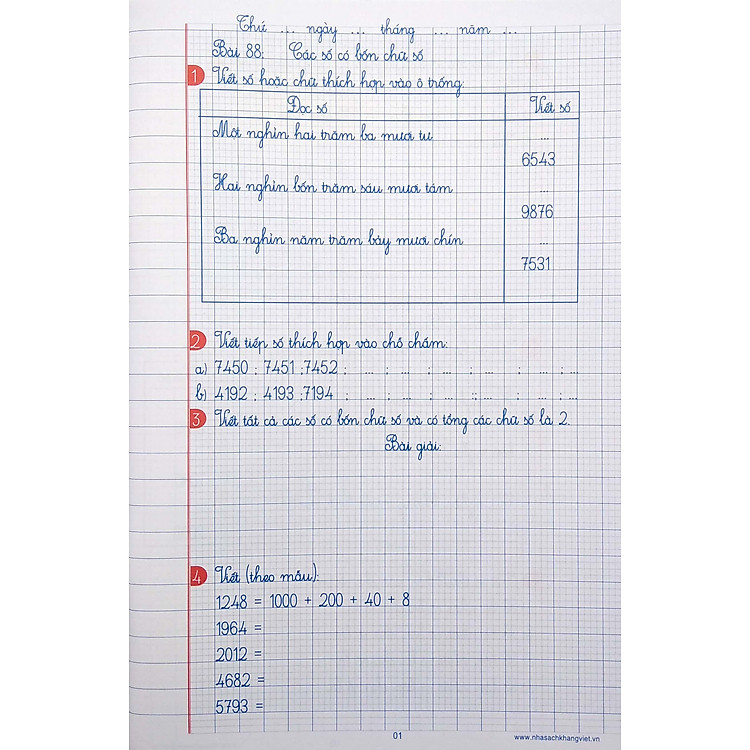 Thứ ... ngày ... tháng ... năm ...
Bài 88: Các số có bốn chữ số
1 Viết số hoặc chữ thích hợp vào ô trống:
Đọc số Viết số
Một nghìn hai trăm ba mươi tư ...
6543
Hai nghìn bốn trăm sáu mươi tám ...
9876
Ba nghìn năm trăm bảy mươi chín ...
7531
2 Viết tiếp số thích hợp vào chỗ chấm:
a) 7450 ; 7451 ; 7452 ; ... ; ... ; ... ; ... ; ... ; ... ; ...
b) 4192 ; 4193 ; 7194 ; ... ; ... ; ... ; ... ; ... ; ... ; ...
3 Viết tất cả các số có bốn chữ số và có tổng các chữ số là 2.
Bài giải:
4 Viết (theo mẫu):
1248 = 1000 + 200 + 40 + 8
1964 =
2012 =
4682 =
5793 =
01
www.nhasachkhangviet.vn